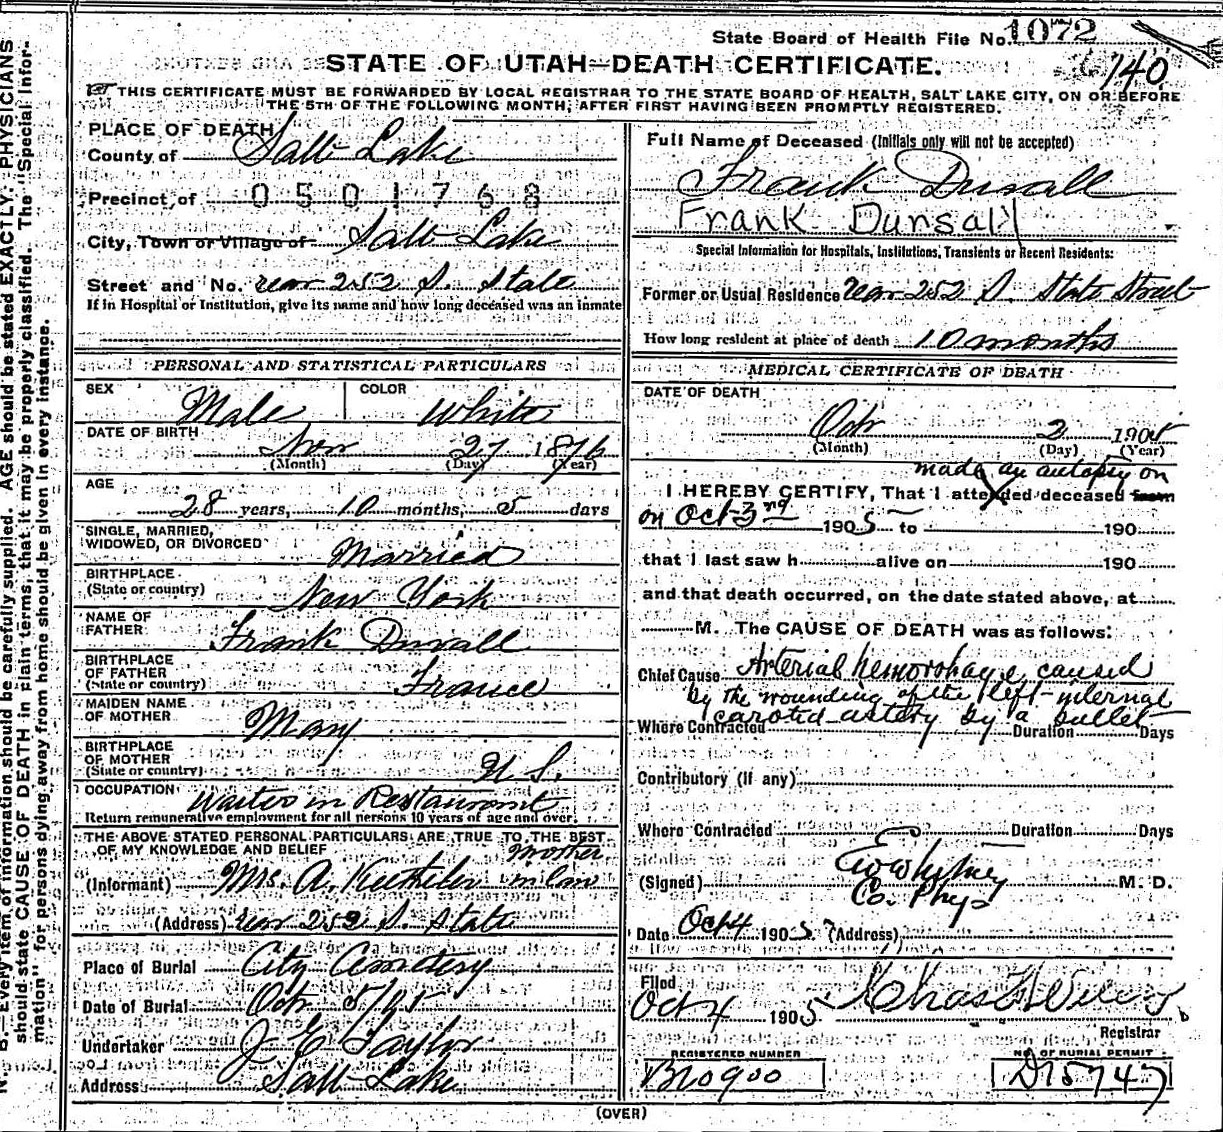 State Board of Health File No. 1072
STATE OF UTAH—DEATH CERTIFICATE.
140
THIS CERTIFICATE MUST BE FORWARDED BY LOCAL REGISTRAR TO THE STATE BOARD OF HEALTH, SALT LAKE CITY, ON OR BEFORE
THE 5TH OF THE FOLLOWING MONTH, AFTER FIRST HAVING BEEN PROMPTLY REGISTERED.
PLACE OF DEATH
County of Salt Lake
Precinct of 0501768
City, Town or Village of Salt Lake
Street and No. rear 252 S. State
If in Hospital or Institution, give its name and how long deceased was an inmate
PERSONAL AND STATISTICAL PARTICULARS
SEX Male COLOR White
DATE OF BIRTH Nov 27 1876
(Month) (Day) (Year)
AGE
28 years, 10 months, 5 days
SINGLE, MARRIED,
WIDOWED, OR DIVORCED Married
BIRTHPLACE
(State or country) New York
NAME OF
FATHER Frank Duvall
BIRTHPLACE
OF FATHER
(State or country) France
MAIDEN NAME
OF MOTHER Mary
BIRTHPLACE
OF MOTHER
(State or country) U S.
OCCUPATION Waiter in Restaurant
Return remunerative employment for all persons 10 years of age and over.
THE ABOVE STATED PERSONAL PARTICULARS ARE TRUE TO THE BEST
OF MY KNOWLEDGE AND BELIEF mother
(Informant) Mrs. A. in law
(Address) rear 252 S. State
Place of Burial City Cemetery
Date of Burial Oct 5/05
Undertaker J E Taylor
Address Salt Lake
Full Name of Deceased (Initials only will not be accepted)
Frank Duvall
Frank Dunsall
Special Information for Hospitals, Institutions, Transients or Recent Residents:
Former or Usual Residence Rear 252 S. State Street
How long resident at place of death 10 months
MEDICAL CERTIFICATE OF DEATH
DATE OF DEATH
Oct 2 1905
(Month) (Day) (Year)
made an autopsy on
I HEREBY CERTIFY, That I attended deceased from
on Oct 3rd 1905 to 190
that I last saw h alive on 190
and that death occurred, on the date stated above, at
M. The CAUSE OF DEATH was as follows:
Chief Cause Arterial hemorrhage caused
by the wounding of the left internal
carotid artery by a bullet
Where Contracted Duration Days
Contributory (if any)
Where Contracted Duration Days
(Signed) Ewd Whitney M. D.
Co. Phys
Date Oct 4 1905 (Address)
Filed
Oct 4 1905
Registrar
REGISTERED NUMBER
B10900
NO. OF BURIAL PERMIT
D15747
(OVER)
N. B.—Every item of information should be carefully supplied. AGE should be stated EXACTLY. PHYSICIANS
should state CAUSE OF DEATH in plain terms, that it may be properly classified. The "Special Infor-
mation" for persons dying away from home should be given in every instance.